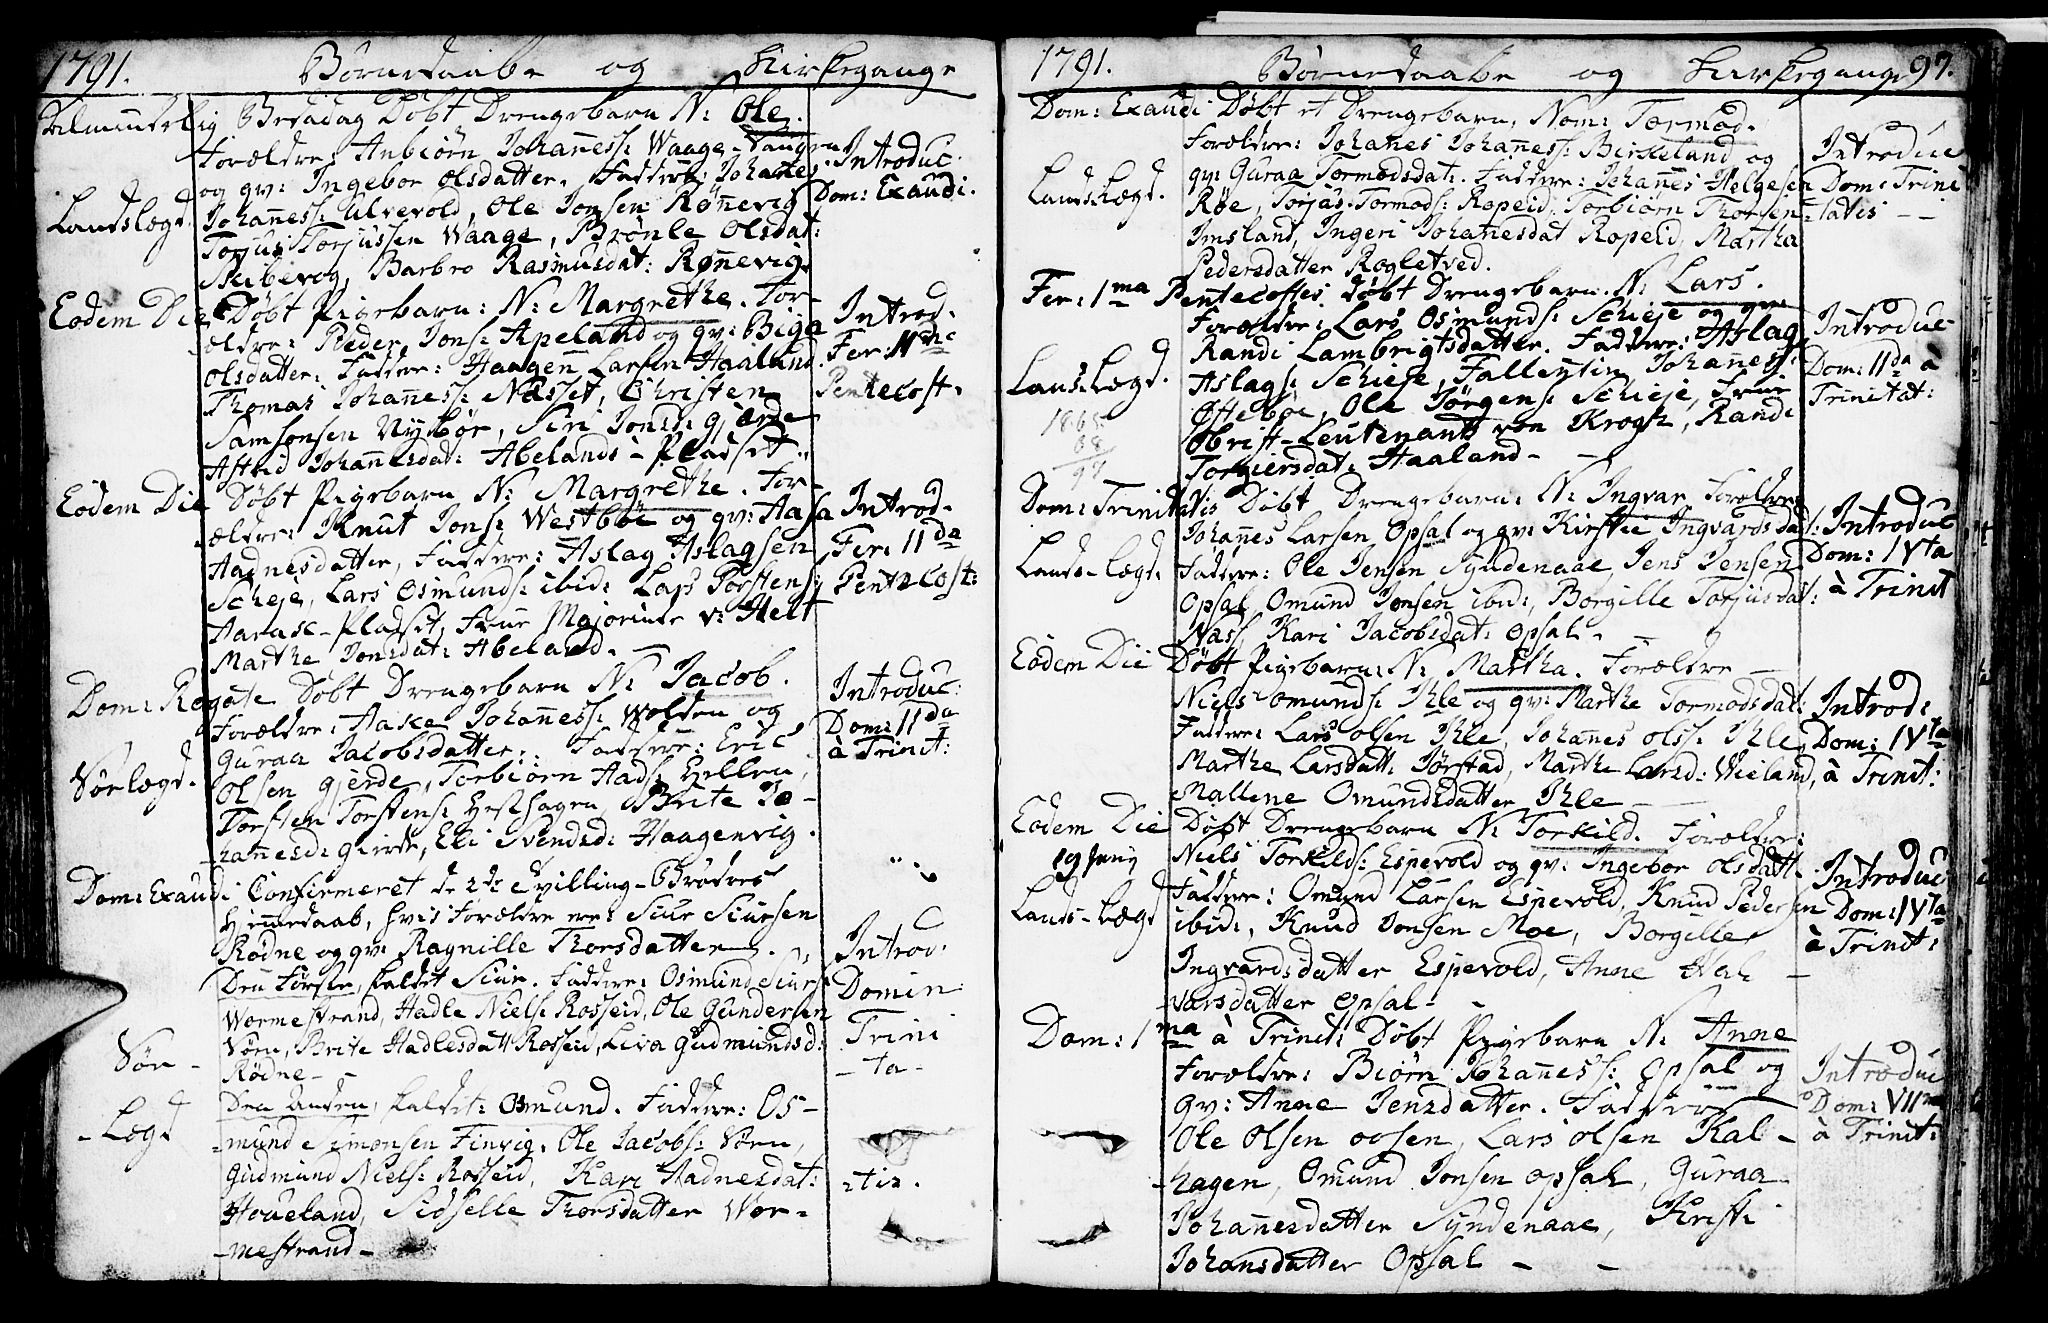 1791. Börnedaabe og Kirkegange
Almindelig Bededag Döbt Drengebarn N: Ole.
Forældre: Anbiörn Johanness: Waage-Tangen
og qv: Ingebor Olsdatter. Faddere: Johanes
Johanness: Ulvevold, Ole Jonsen Rønnevig
Torjus Torjussen Waage, Brönle Olsdat:
Skibevog, Barbro Rasmusdat: Rønnevig.
Landslægd.
Introduc.
Dom: Exaudi.
Eodem Die Døbt Pigebarn: N: Margrethe. For-
ældre: Peder Jons: Apeland og qv: Biga
Olsdatter: Faddere: Haagen Larsen Haaland.
Thomas Johanness: Næsset, Christen
Samsonsen Nyebør, Siri Jonsd: Gjærde
Astrid Johannesdat: Abelands-Pladset.
Introd.
Fer: II
Pentecost.
Eodem Die Döbt Pigebarn N: Margrethe. For-
ældre: Knut Jons: Westböe og qv: Aasa
Aadnesdatter, Faddere: Aslag Aslagsen
Scheje, Lars Osmunds: ibid: Lars Torstens:
Aarask-Pladset, Frue Majorinde v: Helt
Marthe Jonsdat: Abeland.
Introd.
Fer: IIda
Pentecost:
Dom: Rogate Döbt Drengebarn N: Jacob.
Forældre: Aake Johanness: Wolden og
Guraa Jacobsdatter: Faddere: Eric
Olsen Gjerde, Torbiörn Aads: Hellen,
Torsten Torstens: Hesthagen, Brite Jo-
hannesd: Gierde, Eli Svendsd: Haagenvig.
Sörlægd.
Introduc:
Dom: IIda
à Trinit:
Dom: Exaudi Confirmeret de 2de Tvilling-Brödres
Hjemmedaab, hvis Forældre ere: Siur Siursen
Rödne og qv: Ragnille Thorsdatter.
Den Förster, kaldet Siur. Faddere: Osmund Siurs:
Wormestrand, Hadle Niels: Rosseid, Ole Gundersen
Vörn, Brite Hadlesdatt: Rosseid, Liva Gudmundsd:
Rödne
Den Anden, kaldet: Osmund. Faddere: Os-
mund Simonsen Finvig, Ole Jacobs: Vörn,
Gudmund Niels: Rosseid, Kari Aadnesdat:
Houeland, Sidselle Thorsdatter Wor-
mestrand
Sör-
-Lægd
Introd:
Domin:
Trini
-ta-
-tis.
1791. Börnedaabe og Kirkegange 97.
Dom: Exaudi Döbt et Drengebarn, Nom: Tormod.
Forældre: Johanes Johanness: Birkeland og
qv: Guraa Tormodsdat: Faddere: Johannes Helgesen
Røe, Torjus Tormods: Ropeid, Torbiörn Thorsen
Imsland, Ingeri Johannesdat Ropeid, Martha
Pedersdatter Rogletved.
Lands Lægd.
Introduc
Dom: Trini
tatis
Fer: 1ma Pentecostes. Döbt Drengebarn. N: Lars.
Forældre: Lars Osmunds: Schieje og qv:
Randi Lambrigtsdatter. Faddere: Aslag
Aslags: Schieje, Fallentin Johanness:
Øfteböe, Ole Törgens: Schieje, Frue
Obrist-Leutenants von Krogh, Randi
Torgiersdat: Haaland
Lands Lægd.
1865
68
97
Introduc
Dom: IIda à
Trinitat:
Dom: Trinitatis Döbt Drengebarn: N: Ingvar. Forældre
Johanes Larsen Opsal og qv: Kirstie Ingvardsdat:
Faddere: Ole Jensen Syndenaae, Jens Jensen
Opsal, Omund Jonsen ibid:, Borgille Torjusdat:
Nass Kari Jacobsdat: Opsal.
Lands-Lægd.
Introduc
Dom: IVta
à Trinit
Eodem Die Döbt Pigebarn: N: Martha. Forældre
Niels Omunds: Ihle og qv: Marthe Tormodsdat:
Faddere: Lars Olsen Ihle, Johannes Olss: Ihle,
Marthe Larsdatt: Jørstad, Marthe Larsd: Wieland,
Mallene Omundsdatter Ihle
Introd:
Dom: IVta
à Trinit:
Eodem Die Döbt Drengebarn N: Torkild. Forældre:
Niels Torkilds: Espevold og qv: Ingebor Olsdatt.
Faddere: Omund Larsen Espevold, Knud Pedersen
ibid:, Knud Jonsen Moe, Borgille
Ingvardsdatter Espevold, Anne Hal-
varsdatter Opsal
19 Junij
Lands-Lægd
Introduc
Dom: IVta
à Trinit:
Dom: 1ma à Trinit: Döbt Pigebarn N: Anne
Forældre: Biörn Johanness: Opsal og
qv: Anne Jensdatter. Faddere
Ole Olsen Ovsen, Lars Olsen Kal-
hagen, Omund Jonsen Opsal, Guraa
Johannesdatter Syndenaae, Kristi
Johansdatter Opsal
Introduc
Dom: VIIma
à Trinit: